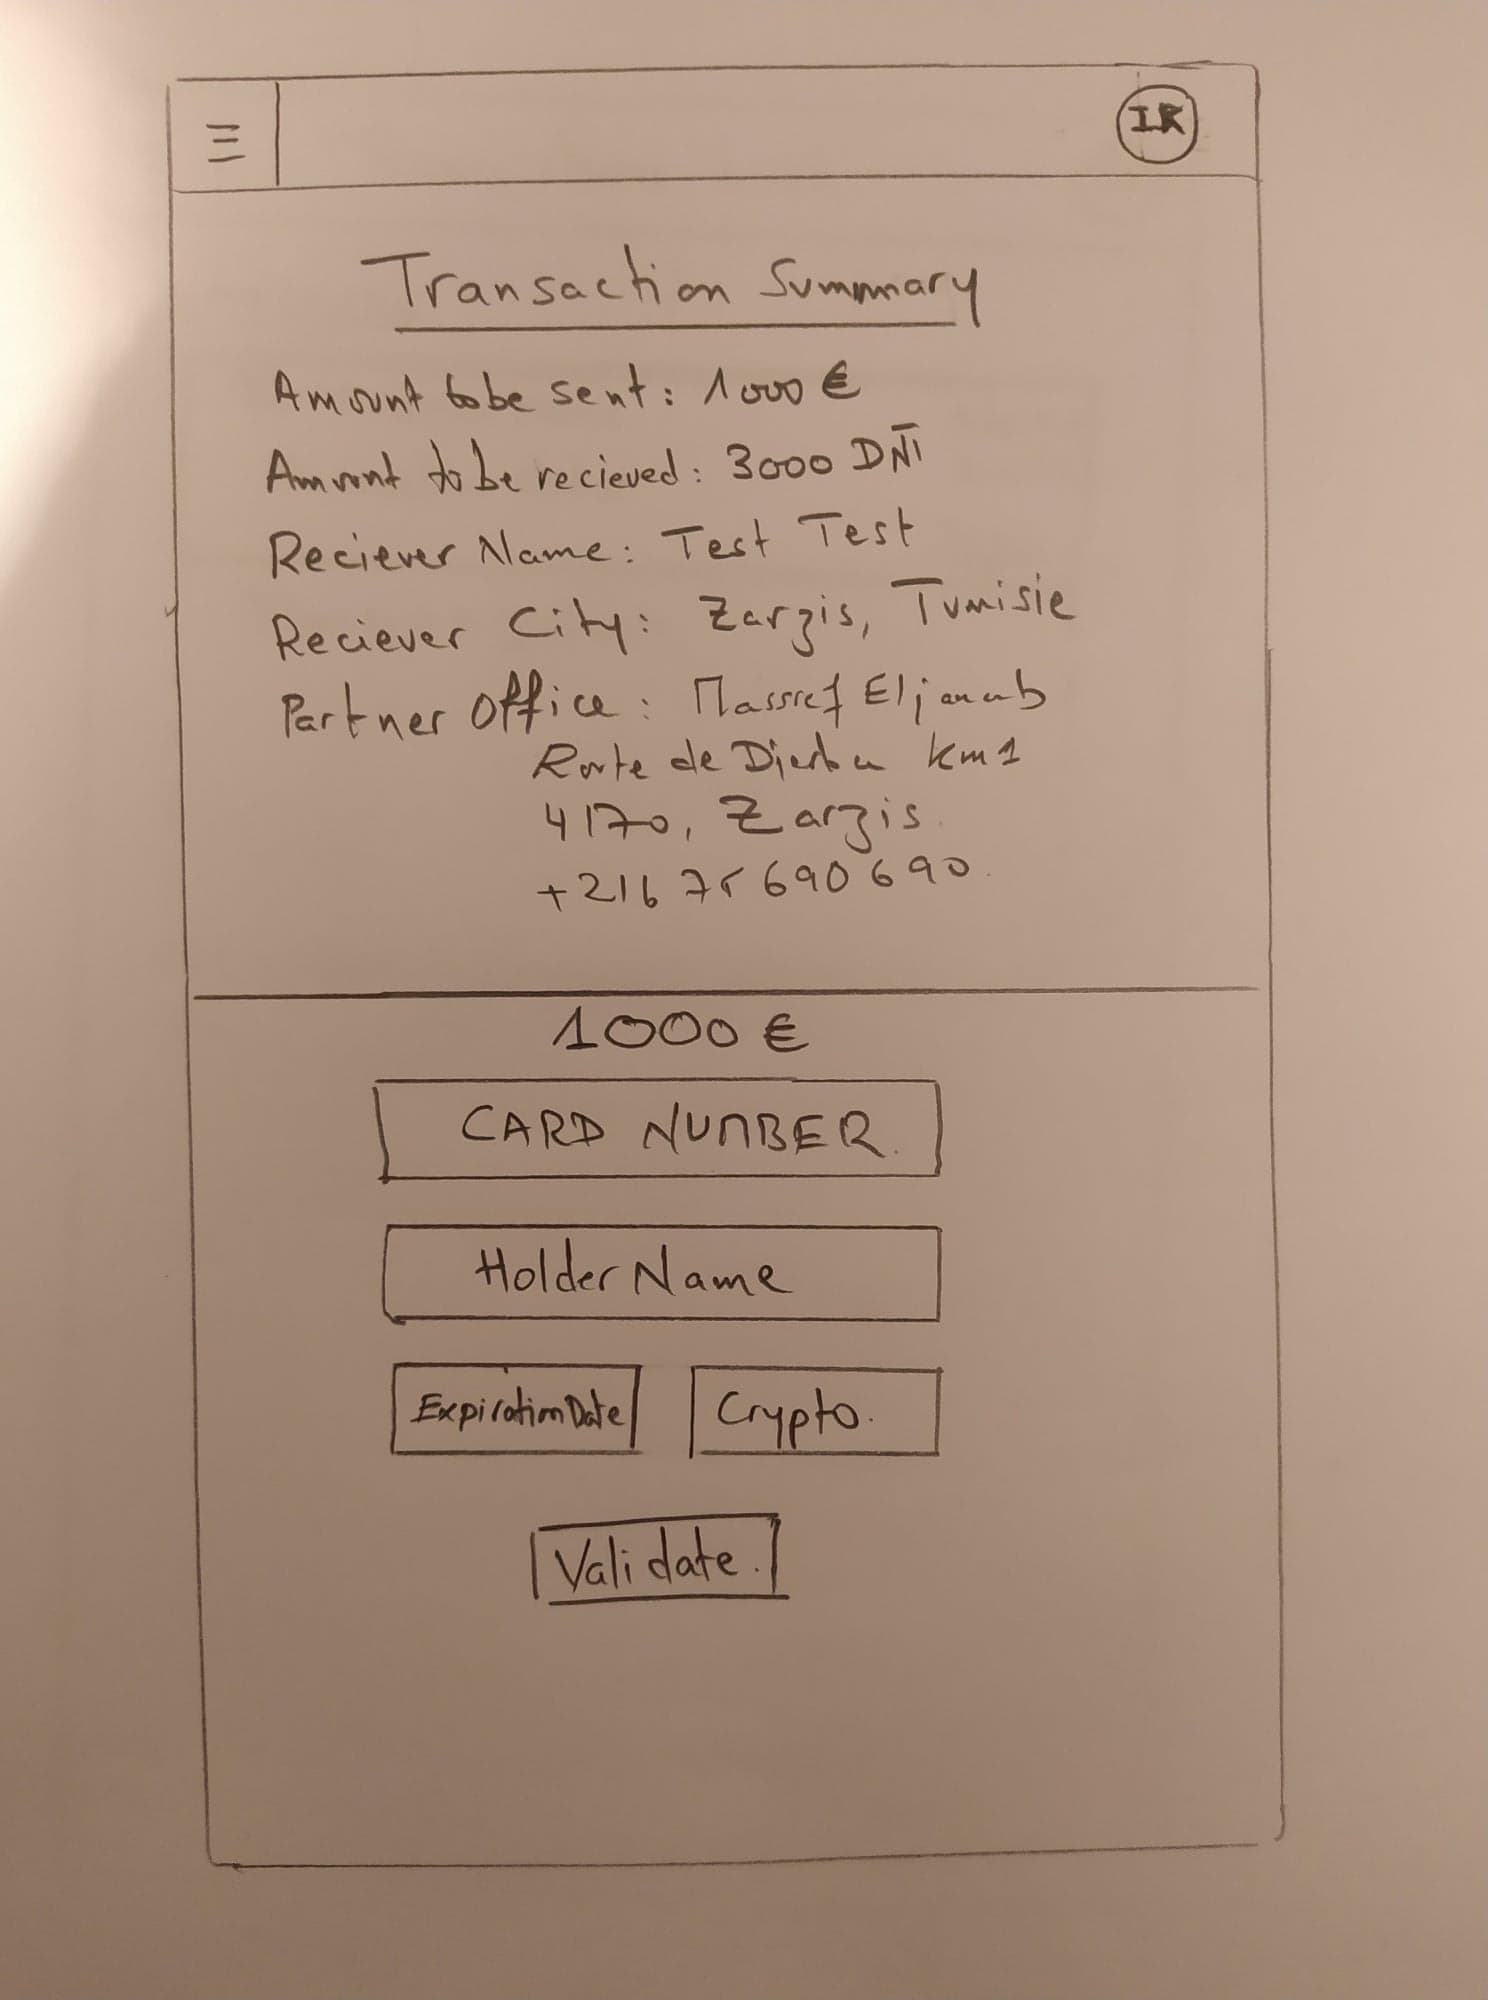 IR
Transaction Summary
Amount to be sent: 1000 €
Amount to be recieved: 3000 DNT
Reciever Name: Test Test
Reciever City: Zarzis, Tunisie
Partner Office: Massref Eljanub
Route de Djerba km1
4170, Zarzis.
+216 75 690 690.
1000 €
CARD NUMBER.
Holder Name
Expiration Date
Crypto.
Validate.